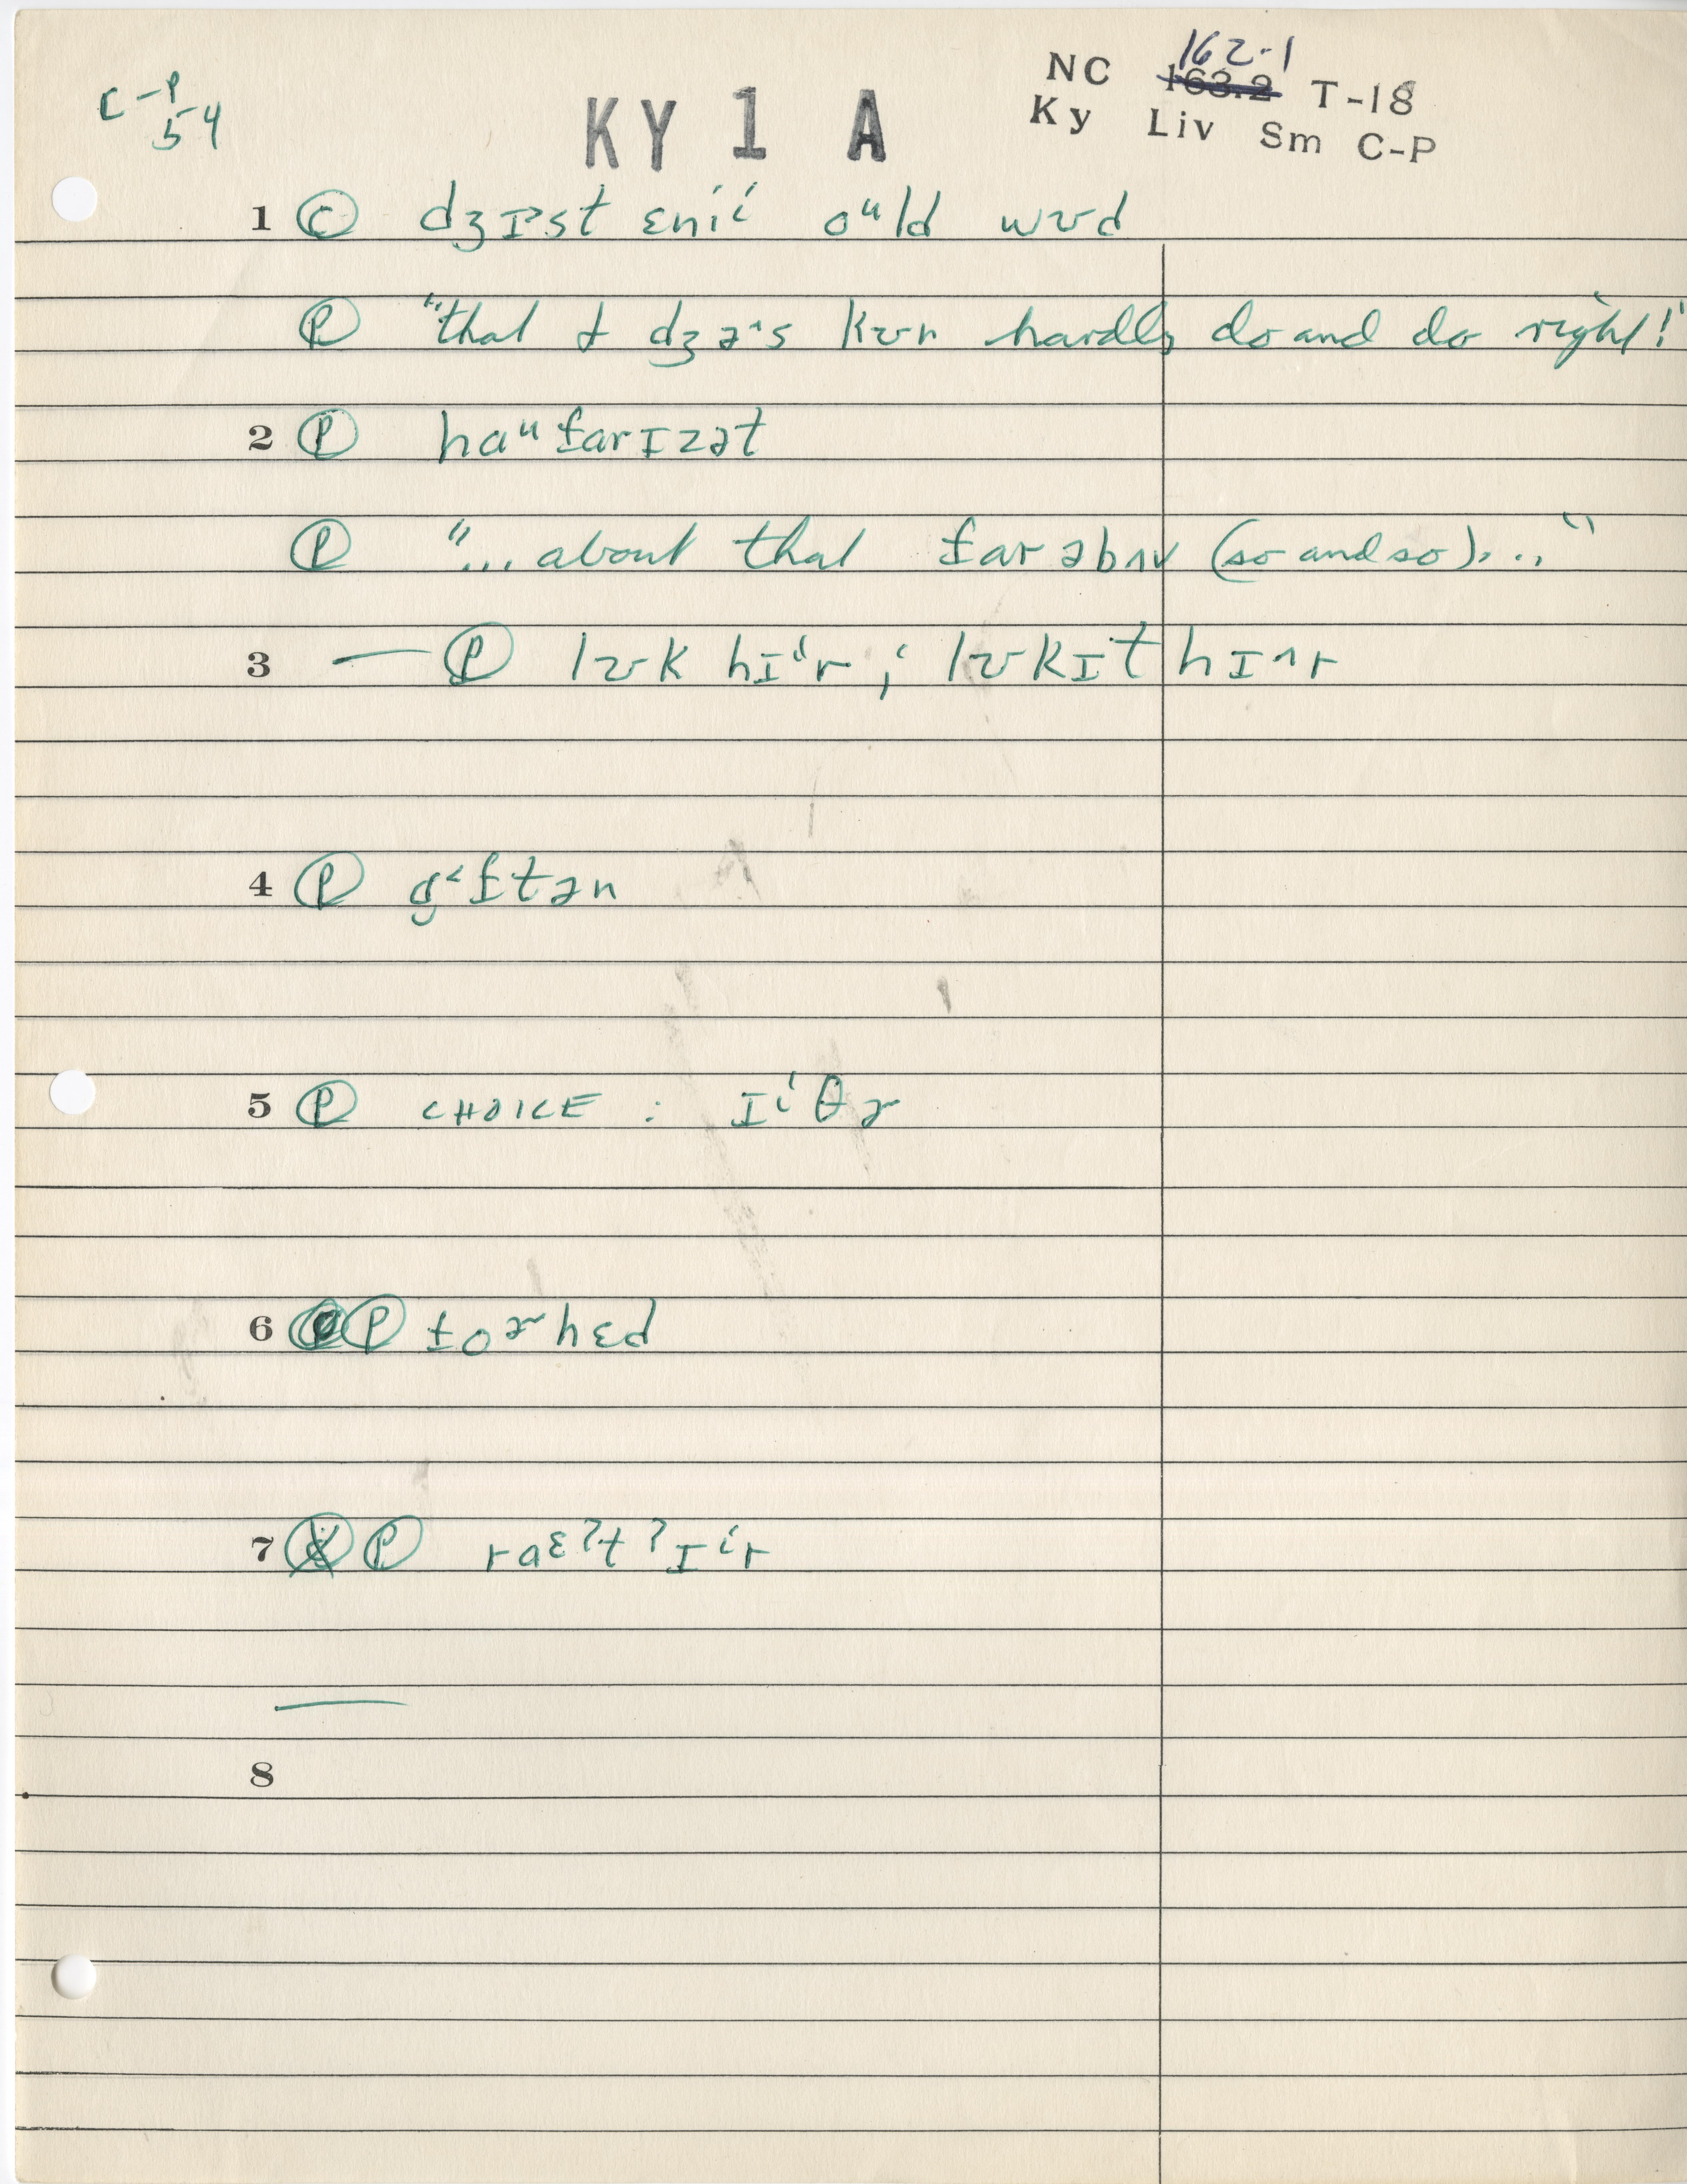 C-P
5-4
KY 1 A
NC 163.2 162.1 T-18
Ky Liv Sm C-P
1 Ⓒ dʒɪst ɛniⁱ oᵘld wʊd
Ⓟ "that I dʒəˆs kʊn hardly do and do right!"
2 Ⓟ haᵘ farɪzət
Ⓟ "... about that far əbʌv (so and so)..."
3 — Ⓟ lʊk hɪⁱr ; lʊkɪt hɪˆr
4 Ⓟ ftən
5 Ⓟ CHOICE : ɪⁱθɚ
6 Ⓟ foɚhɛd
7 Ⓟ raᵋʔtʔɪⁱr
8